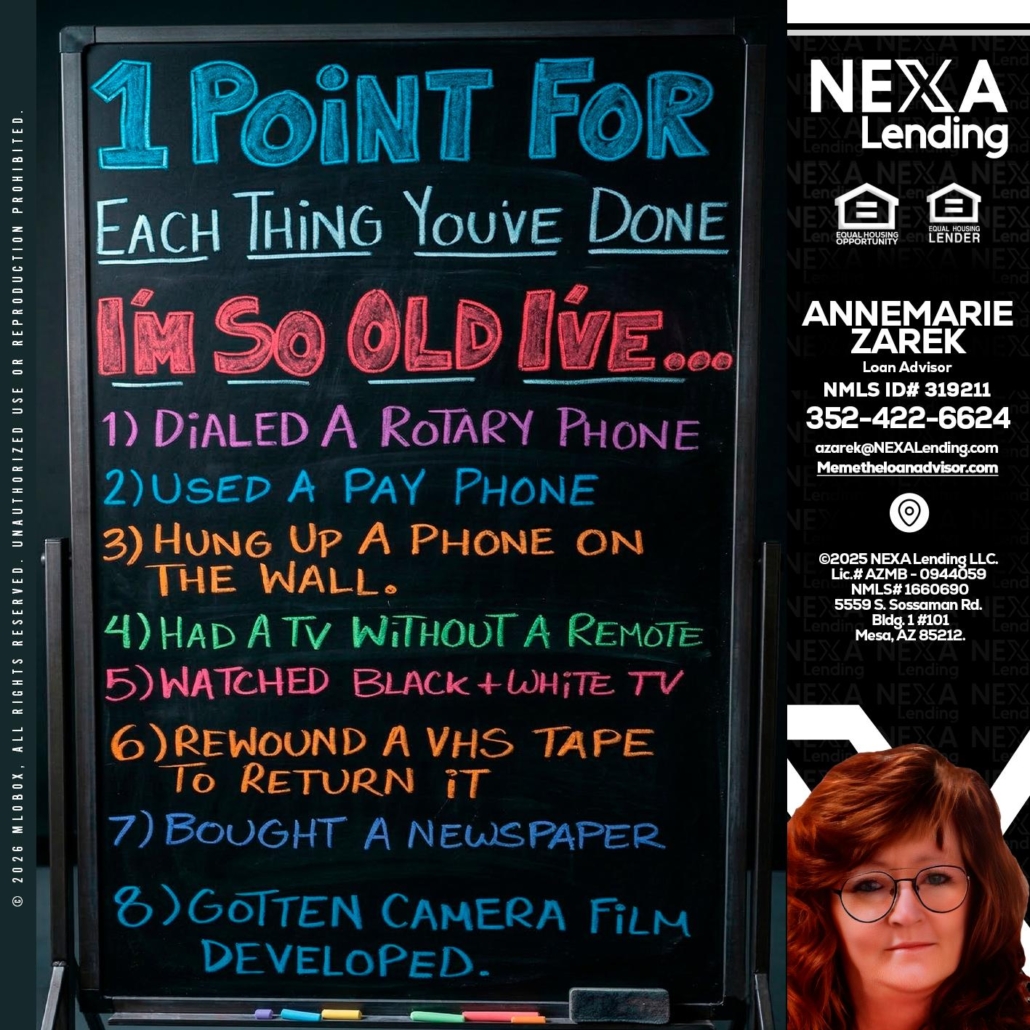 1 POiNT FOR
EACH THiNG YOU'VE DONE
I'M SO OLD I'VE...
1) DiALED A ROTARY PHONE
2) USED A PAY PHONE
3) HUNG UP A PHONE ON
THE WALL.
4) HAD A TV WiTHOUT A REMOTE
5) WATCHED BLACK + WHiTE TV
6) REWOUND A VHS TAPE
TO RETURN iT
7) BOUGHT A NEWSPAPER
8) GOTTEN CAMERA FiLM
DEVELOPED.
© 2026 MLOBOX, ALL RIGHTS RESERVED. UNAUTHORIZED USE OR REPRODUCTION PROHIBITED.
NEXA
Lending
EQUAL HOUSING
OPPORTUNITY
EQUAL HOUSING
LENDER
ANNEMARIE
ZAREK
Loan Advisor
NMLS ID# 319211
352-422-6624
azarek@NEXALending.com
Memetheloanadvisor.com
©2025 NEXA Lending LLC.
Lic.# AZMB - 0944059
NMLS# 1660690
5559 S. Sossaman Rd.
Bldg. 1 #101
Mesa, AZ 85212.